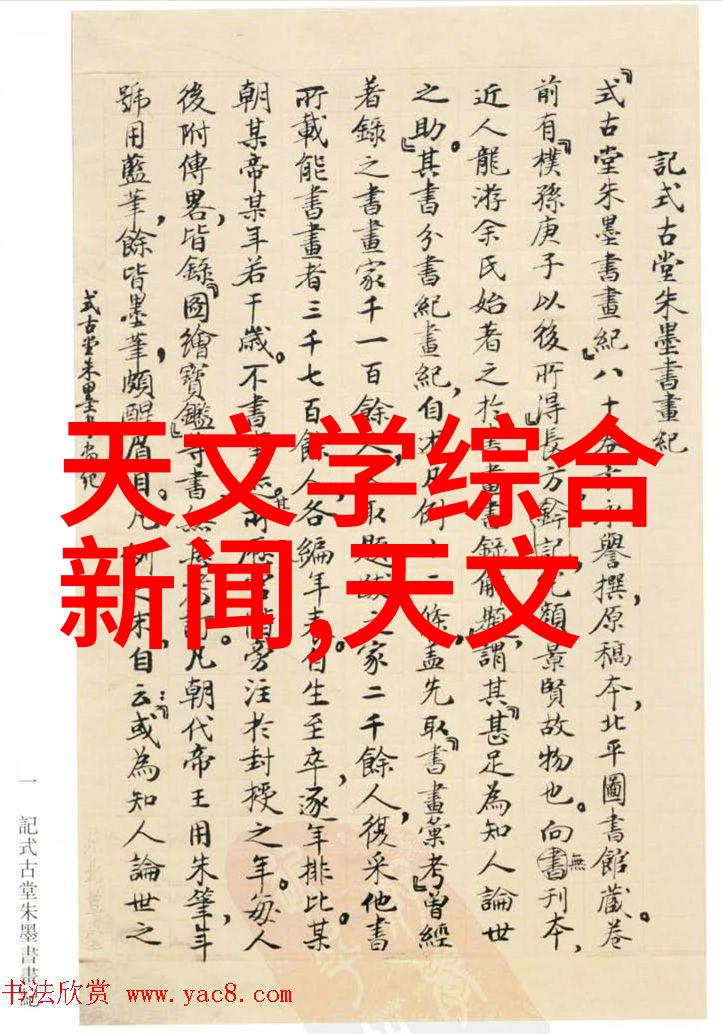 記式古堂朱墨書畫紀
『式古堂朱墨書畫紀』八十卷,卞永譽撰,原稿本,北平圖書館藏。卷
前有『樸孫庚子以後所得』長方
記,完顏景賢故物也。向無刊本,
近人龍游余氏始著之於書畫書錄解題,謂其『甚足為知人論世
之助。』其書分書紀畫紀,自
例十二條,蓋先取『書畫彙考』曾經
著錄之書畫家千一百餘人,
取題跋之家二千餘人,復采他書
所載能書畫者三千七百餘人,各編年表。自生至卒,逐年排比某
朝某帝某年若干歲。不書事
其所
旁注於封授之年。每人
後附傳畧,皆錄『圖繪寶鑑』等書
凡朝代帝王用朱筆,年
號用藍筆,餘皆墨筆,頗醒眉目。凡例
末,自云:『或為知人論世之
式古堂朱墨書畫紀
一 記式古堂朱墨書畫紀
天文学综合
新闻,天文
书法欣赏 www.yac8.com